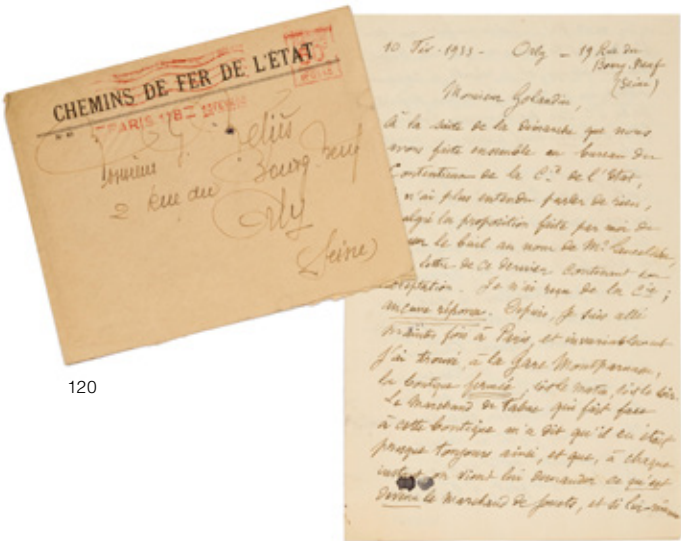 CHEMINS DE FER DE L'ÉTAT
PARIS
Monsieur G. Méliès
2 Rue du Bourg Neuf
Orly
(Seine)
120
10 Fév. 1933 - Orly - 19 Rue du
Bourg-Neuf
(Seine)
Monsieur
à la suite de la démarche que nous
avons faite ensemble au bureau du
Contentieux de la Cie de l'Etat,
n'ai plus entendu parler de rien,
malgré la proposition faite par moi de
le bail au nom de Mr
lettre de ce dernier contenant son
acceptation. Je n'ai reçu de la Cie ;
aucune réponse. Depuis, je suis allé
maintes fois à Paris, et invariablement
j'ai trouvé, à la Gare Montparnasse,
la boutique fermée, soit le matin, soit le soir.
Le marchand de tabac qui fait face
à cette boutique m'a dit qu'il en était
presque toujours ainsi, et que, à chaque
instant on vient lui demander ce qu'est
devenu le marchand de jouets, et si lui-même